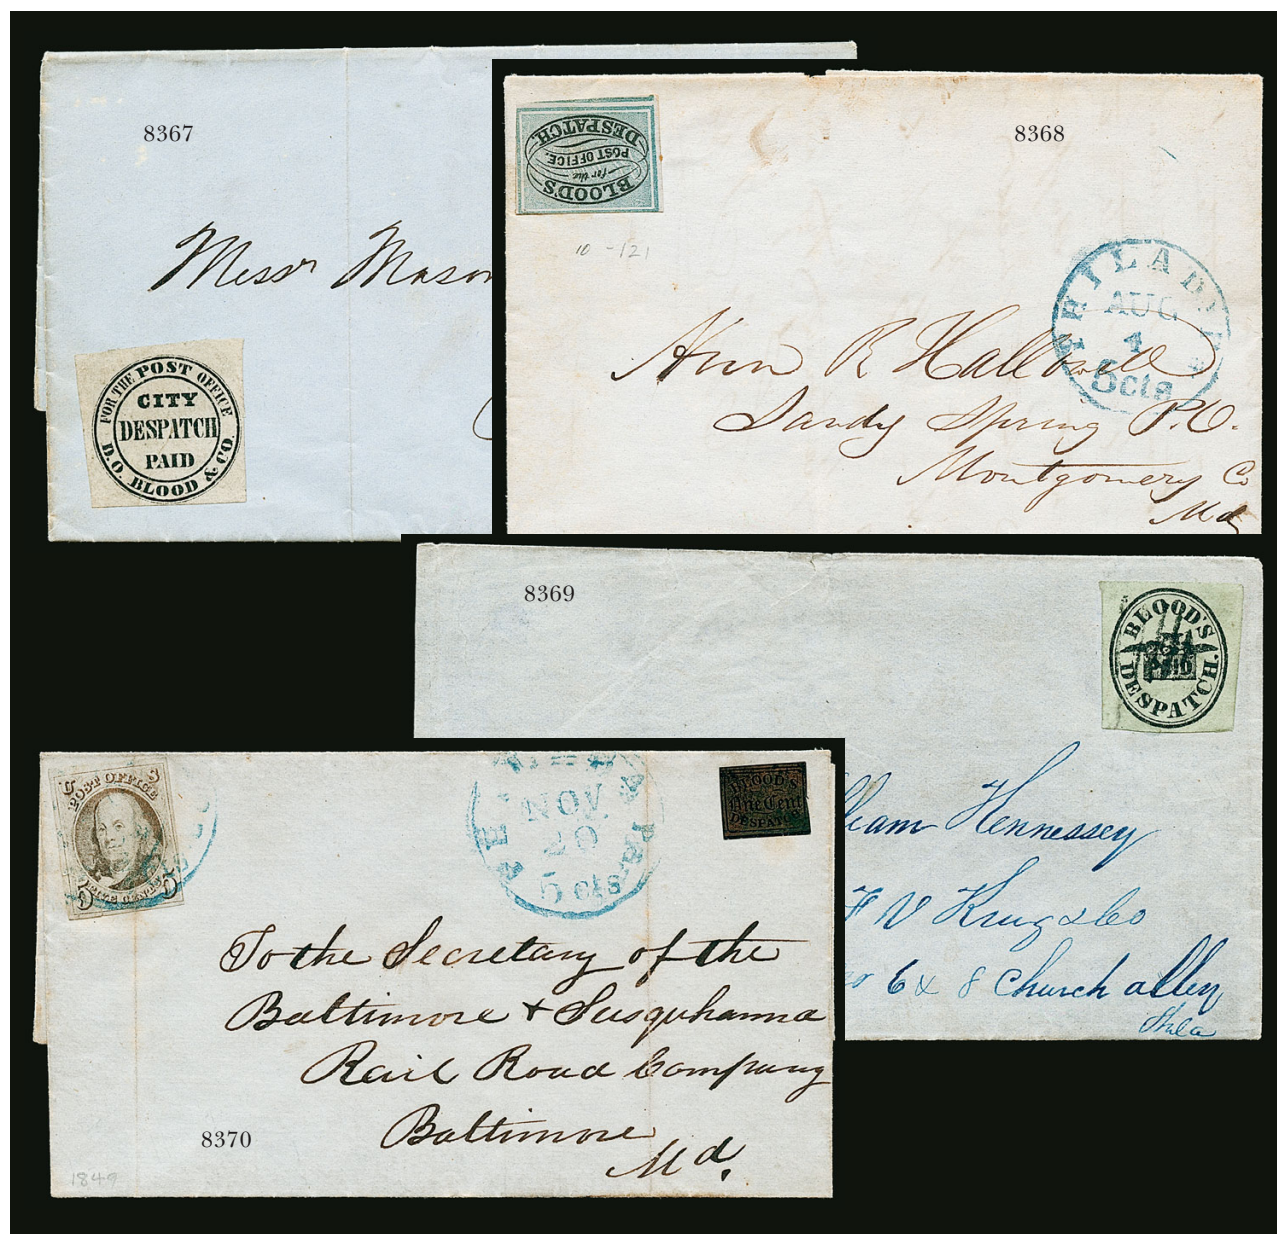 8367
Messr Mason
FOR THE POST OFFICE
CITY
DESPATCH
PAID
D.O. BLOOD & CO.
8368
BLOOD'S
for the
POST OFFICE.
DESPATCH.
10 - 121
PHILADA
AUG
4
5cts
Ann R Hallowell
Sandy Spring P.O.
Montgomery Co
Md
8369
BLOOD'S
PAID
DESPATCH.
Hennessey
F V Krug & Co
6 & 8 Church alley
Phila
8370
U S
POST OFFICE
FIVE CENTS
5 5
PHILADA Pa.
NOV.
20
5 cts
BLOOD'S
One Cent
DESPATCH
To the Secretary of the
Baltimore & Susquhanna
Rail Road Company
Baltimore
Md.
1849